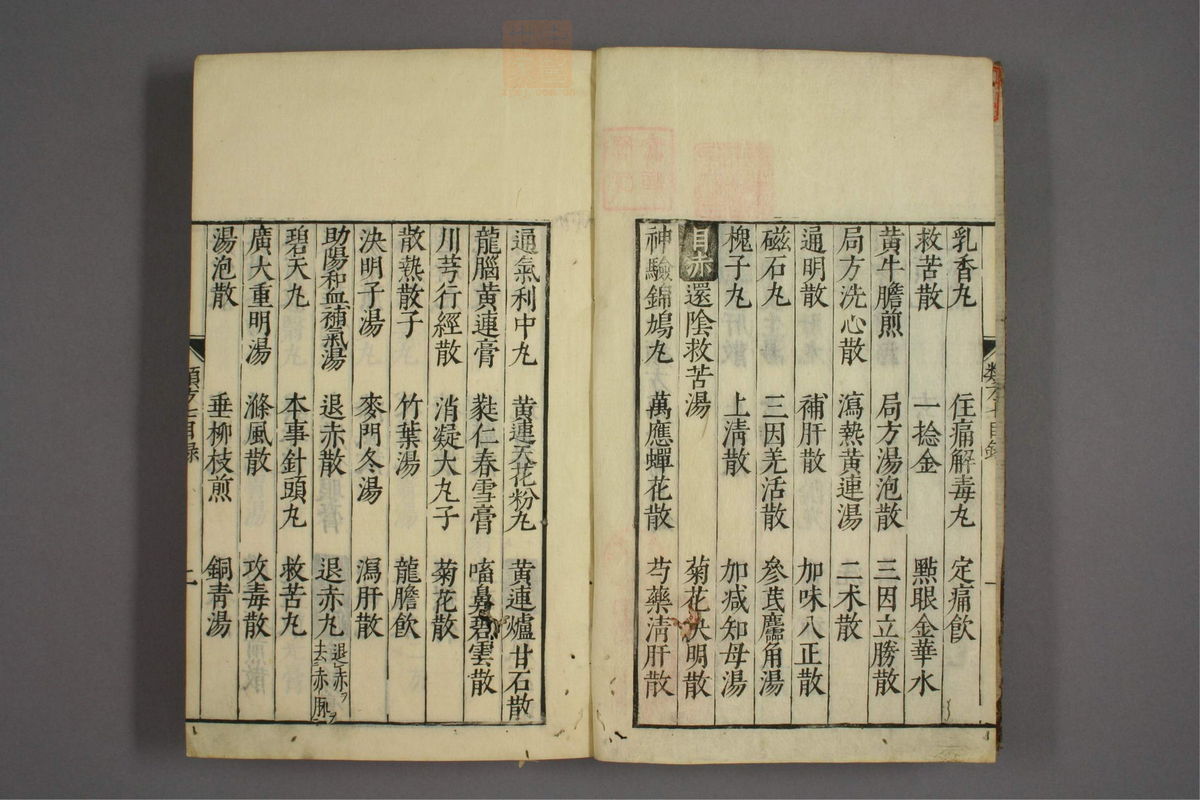 乳香丸 住痛解毒丸 定痛飲
救苦散 一捻金 㸃眼金華水
黄牛膽煎 局方湯泡散 三因立勝散
局方洗心散 瀉熱黄連湯 二术散
通明散 補肝散 加味八正散
磁石丸 三因羌活散 參芪麝角湯
槐子丸 上清散 加减知母湯
目赤 還陰救苦湯 菊花决明散
神驗錦鳩丸 萬應蟬花散 芍藥清肝散
類方七目錄 一
通氣利中丸 黄連天花粉丸 黄連爐甘石散
龍腦黄連膏 蕤仁春雪膏 㗜鼻碧雲散
川芎行經散 消凝大丸子 菊花散
散熱散子 竹葉湯 龍膽飲
决明子湯 麥門冬湯 瀉肝散
助陽和血補氣湯 退赤散 退赤丸 退赤ヲ去赤脈ヲ
碧天丸 本事針頭丸 救苦丸
廣大重明湯 滌風散 攻毒散
湯泡散 垂柳枝煎 銅青湯
類方七目録 二